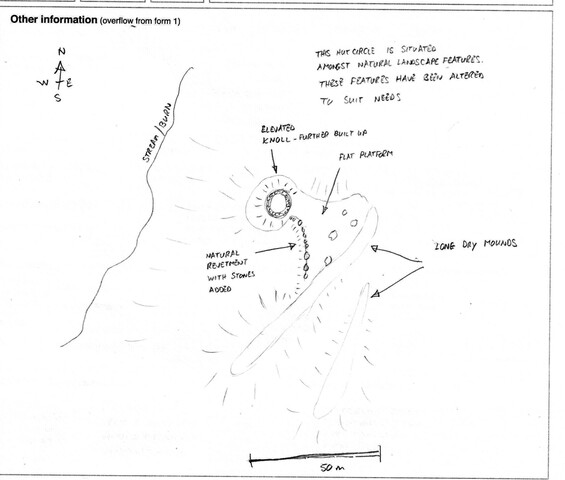 Other information (overflow from form 1)
N
W E
S
STREAM/BURN
THIS HUT CIRCLE IS SITUATED
AMONGST NATURAL LANDSCAPE FEATURES.
THESE FEATURES HAVE BEEN ALTERED
TO SUIT NEEDS
ELEVATED
KNOLL - FURTHER BUILT UP
FLAT PLATFORM
NATURAL
REVETMENT
WITH STONES
ADDED
LONG DRY MOUNDS
50 m